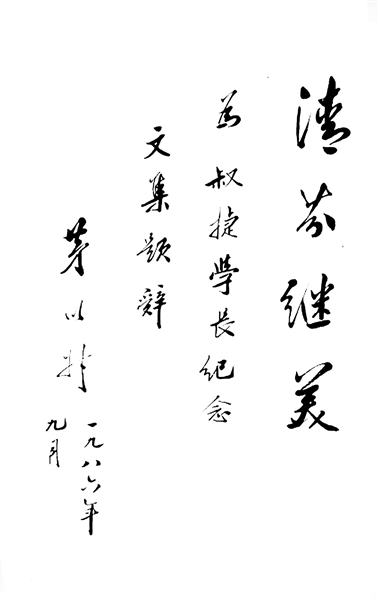 清芬继美
为叔捷学长纪念
文集题辞
茅以升
一九八六年
九月